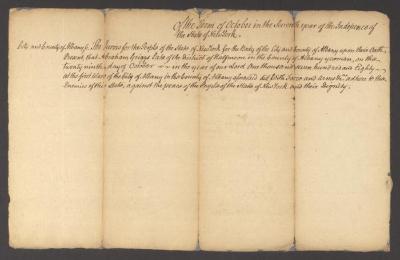 Of the Term of October in the Seventh year of the Independence of
the State of New York.
City and County of Albany ss. The Jurors for the People of the State of New York for the Body of the City and County of Albany upon their Oath
Present, that Abraham Briggs late of the District of in the County of Albany yeoman, on the
twenty ninth day of October in the year of our Lord One thousand seven hundred and Eighty
at the first Ward of the City of Albany in the County of Albany aforesaid did With force and arms &c. adhere to the
Enemies of this State, against the peace of the People of the State of New York and their Dignity.